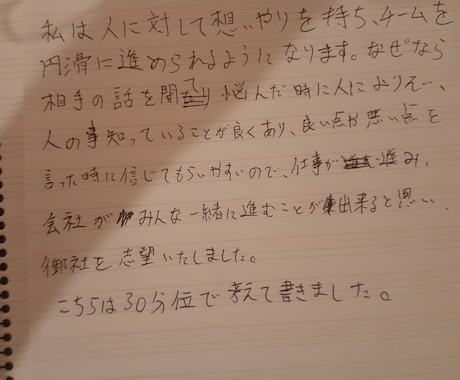 私は人に対して想いやりを持ち、チームを
円滑に進められるようになります。なぜなら
相手の話を聞て 悩んだ時に人によりそい、
人の事知っていることが良くあり、良い点か悪い点を
言った時に信じてもらいやすいので、仕事が進み、
会社がみんな一緒に進むことが出来ると思い、
御社を志望いたしました。
こちらは30分位で考えて書きました。